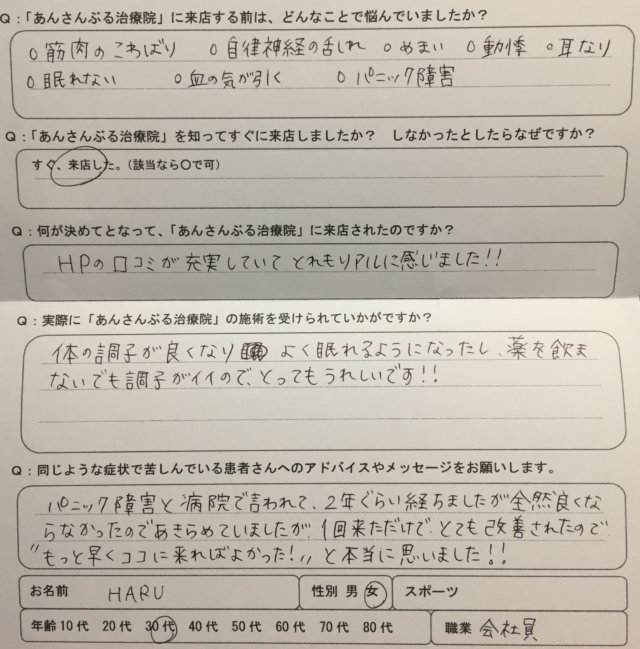 Q：「あんさんぶる治療院」に来店する前は、どんなことで悩んでいましたか？
○筋肉のこわばり ○自律神経の乱れ ○めまい ○動悸 ○耳なり
○眠れない ○血の気が引く ○パニック障害
Q：「あんさんぶる治療院」を知ってすぐに来店しましたか？ しなかったとしたらなぜですか？
すぐ、来店した。（該当なら〇で可）
Q：何が決めてとなって、「あんさんぶる治療院」に来店されたのですか？
HPの口コミが充実していて、どれもリアルに感じました!!
Q：実際に「あんさんぶる治療院」の施術を受けられていかがですか？
体の調子が良くなり よく眠れるようになったし、薬を飲ま
ないでも調子がイイので、とってもうれしいです!!
Q：同じような症状で苦しんでいる患者さんへのアドバイスやメッセージをお願いします。
パニック障害と病院で言われて、2年ぐらい経ちましたが全然良くな
らなかったのであきらめていましたが、1回来ただけで、とても改善されたので
〝もっと早くココに来ればよかった!〟と本当に思いました!!
お名前 HARU 性別 男 女 スポーツ
年齢 10代 20代 30代 40代 50代 60代 70代 80代 職業 会社員